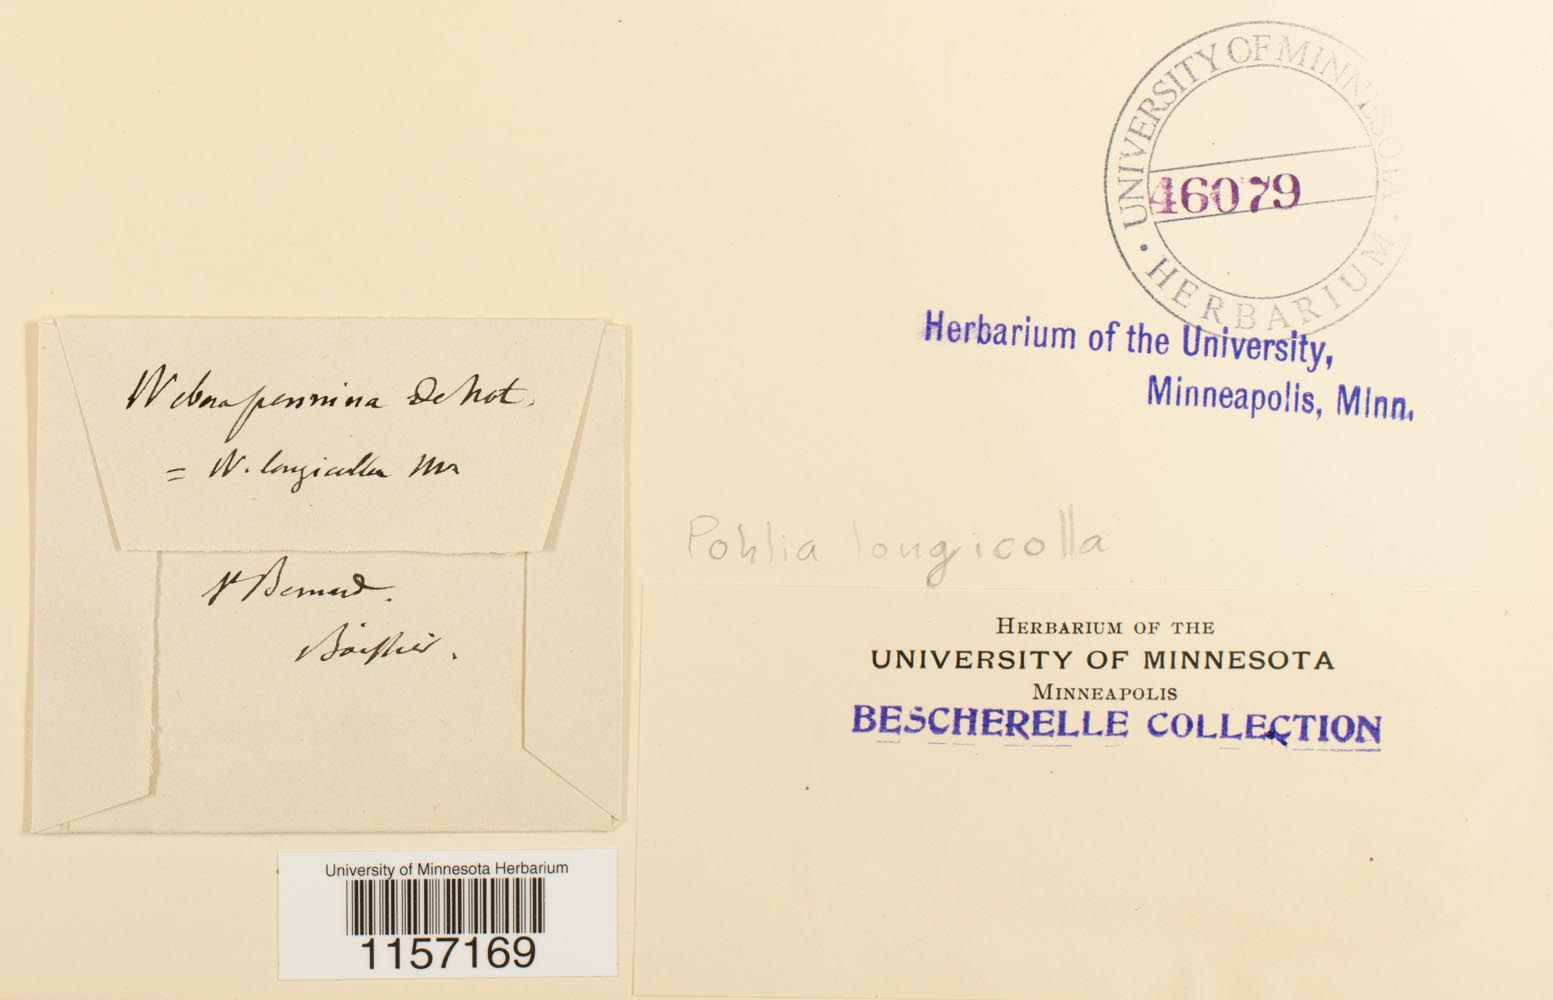 UNIVERSITY OF MINNESOTA
HERBARIUM
46079
Herbarium of the University,
Minneapolis, Minn.
Webera pennina DeNot.
= W. longicolla
St Bernard.
Pohlia longicolla
HERBARIUM OF THE
UNIVERSITY OF MINNESOTA
MINNEAPOLIS
BESCHERELLE COLLECTION
University of Minnesota Herbarium
1157169